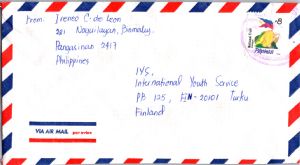 From: Ireneo C. de Leon
201 Naguilayan, Binmaley,
Pangasinan 2417
Philippines
P8
Pilipinas
IYS.
International Youth Service
PB 125, FIN-20101 Turku
Finland
VIA AIR MAIL par avion